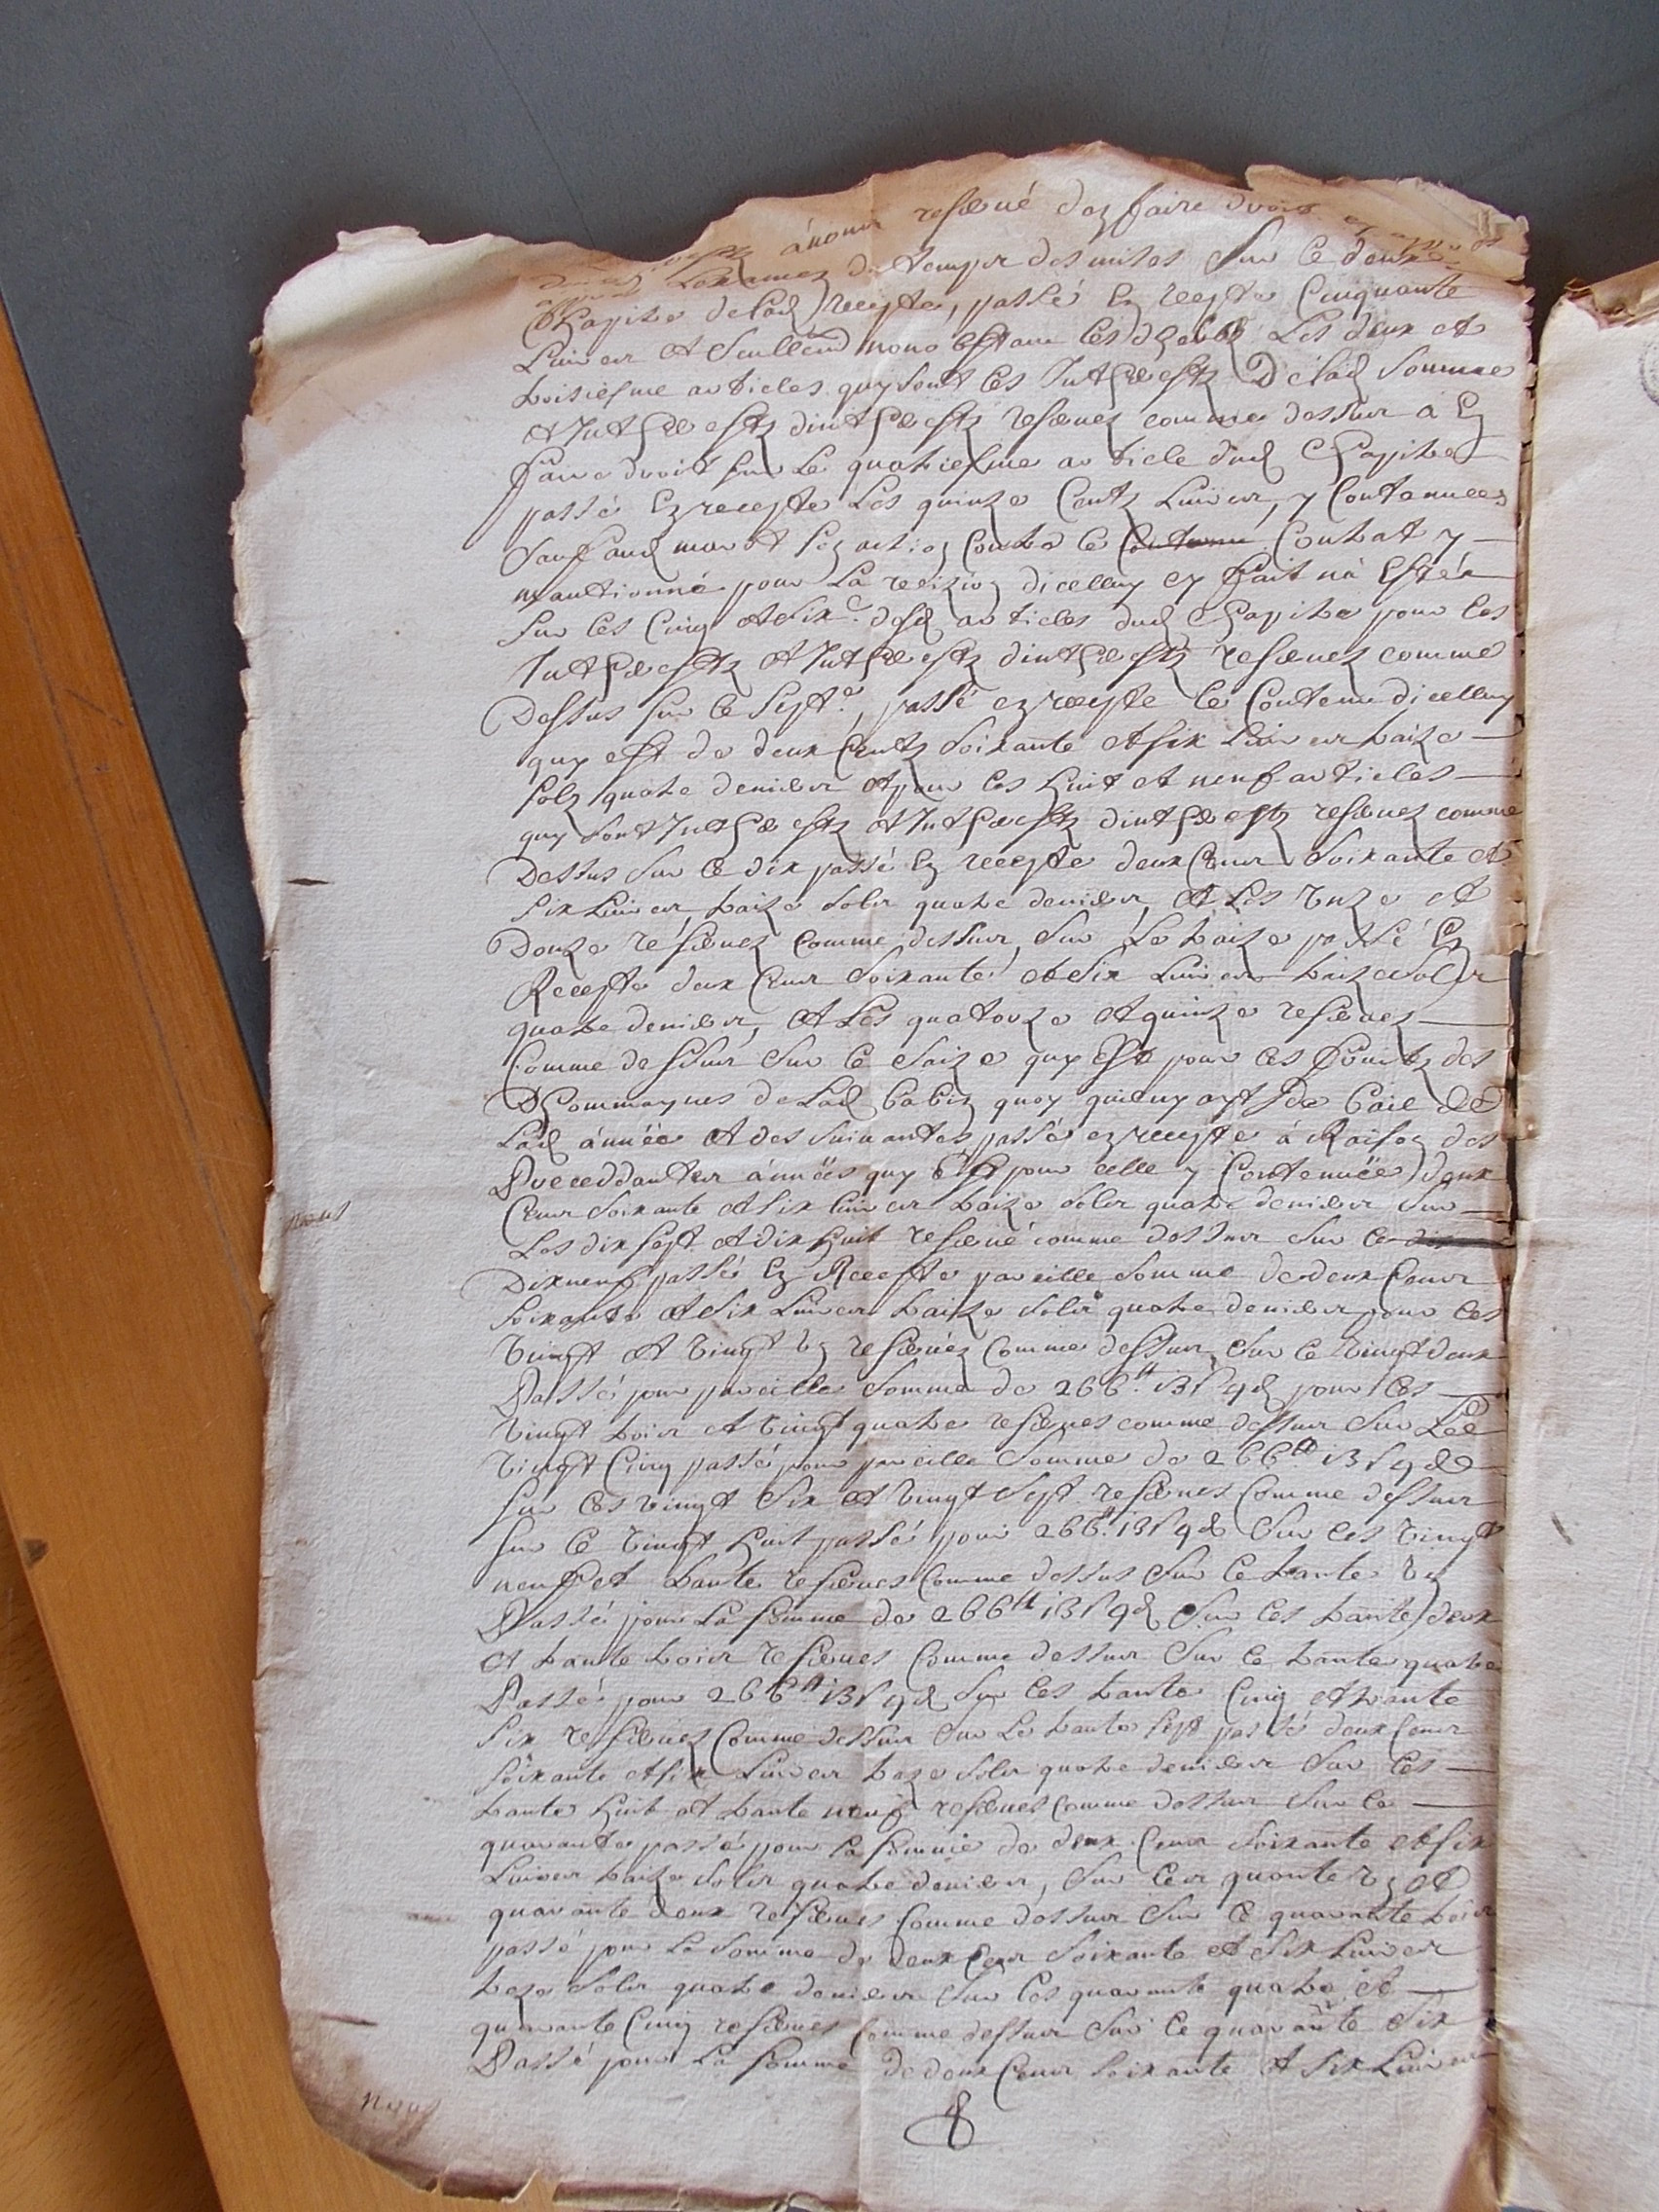 ánonur reserué den faire droit
Lexamen du temps des mises sur le deuxe
Chapitre de lad recepte, passé En recepte Cinquante
Liures et seullemt nous estant les
troisiesme articles quy sont les Intherestz De lad somme
et Intherestz dintherestz reseruez comme dessus a En
faire droit sur Le quatriesme article dud Chapitre
passé En recepte Les quinze Centz Liures, y Contenues
Sauf aud son action Contre le Contenu Contrat y
mantionné pour La reizion dicelluy cy fait nà Esté
sur les Cinq et six.e dsd articles dud Chapitre pour les
Intherestz et Intherestz dintherestz reseruez comme
Dessus sur le sept.e, passé en recepte le Contenu dicelluy
quy est de deux Centz soixante et six Liures traize
solz quatre deniers et pour les huit et neuf articles
quy sont Intherestz et Intherestz dintherestz reseruez comme
Dessus sur le dix passé En recepte deux Cens soixante et
six Liures traize sols quatre deniers, et Les unze et
Douze réseruez comme dessus, sur Le traize passé En
Recepte deux Cens soixante et six Liures traize sols
quatre deniers, et Les quatorze et quinze reseruez
Comme dessus sur le saize quy est pour les fruitz des
Dhommaynes de Lad quoy quilny ayt de bail de
Lad année et des suiuantes passé en recepte à Raison des
Preceddantes années quy est pour celle y Contenuée deux
Cens soixante et six liures traize sols quatre deniers sur
Les dix sept et dix huit reserué comme dessus sur le dix
Dixneuf passé En Recepte pareille somme de deux Cens
soixante et six Liures traize sols quatre deniers pour les
vingt et vingt un reseruéz Comme dessus sur le vingt deux
Passé pour pareille somme de 266tt 13s 4d pour les
vingt trois et vingt quatre reserues comme dessus sur Le
vingt Cinq passé pour pareille somme de 266tt 13s 4d
sur les vingt six et vingt sept reserues Comme dessus
sur le vingt huit passé pour 266tt 13s 4d sur les vingt
neuf et trante reserues Comme dessus sur le trante un
Passé pour La somme de 266tt 13s 4d sur les trante deux
et trante trois reserues Comme dessus sur le trante quatre
Passé pour 266tt 13s 4d sur les trante Cinq et trante
six reserues Comme dessus sur Le trante sept passé deux Cens
soixante et six Liures treze sols quatre deniers sur les
trante huit et trante neuf reserues Comme dessus sur le
quarante passé pour la somme de deux Cens soixante et six
Liures traize sols quatre deniers, sur les quarante un et
quarante deux reserues Comme dessus sur le quarante trois
passé pour La somme de deux Cens soixante et six Liures
treze sols quatre deniers sur Les quarante quatre et
quarante Cinq reserues Comme dessus sur le quarante six
Passé pour La somme de deux Cens soixante et six Liures